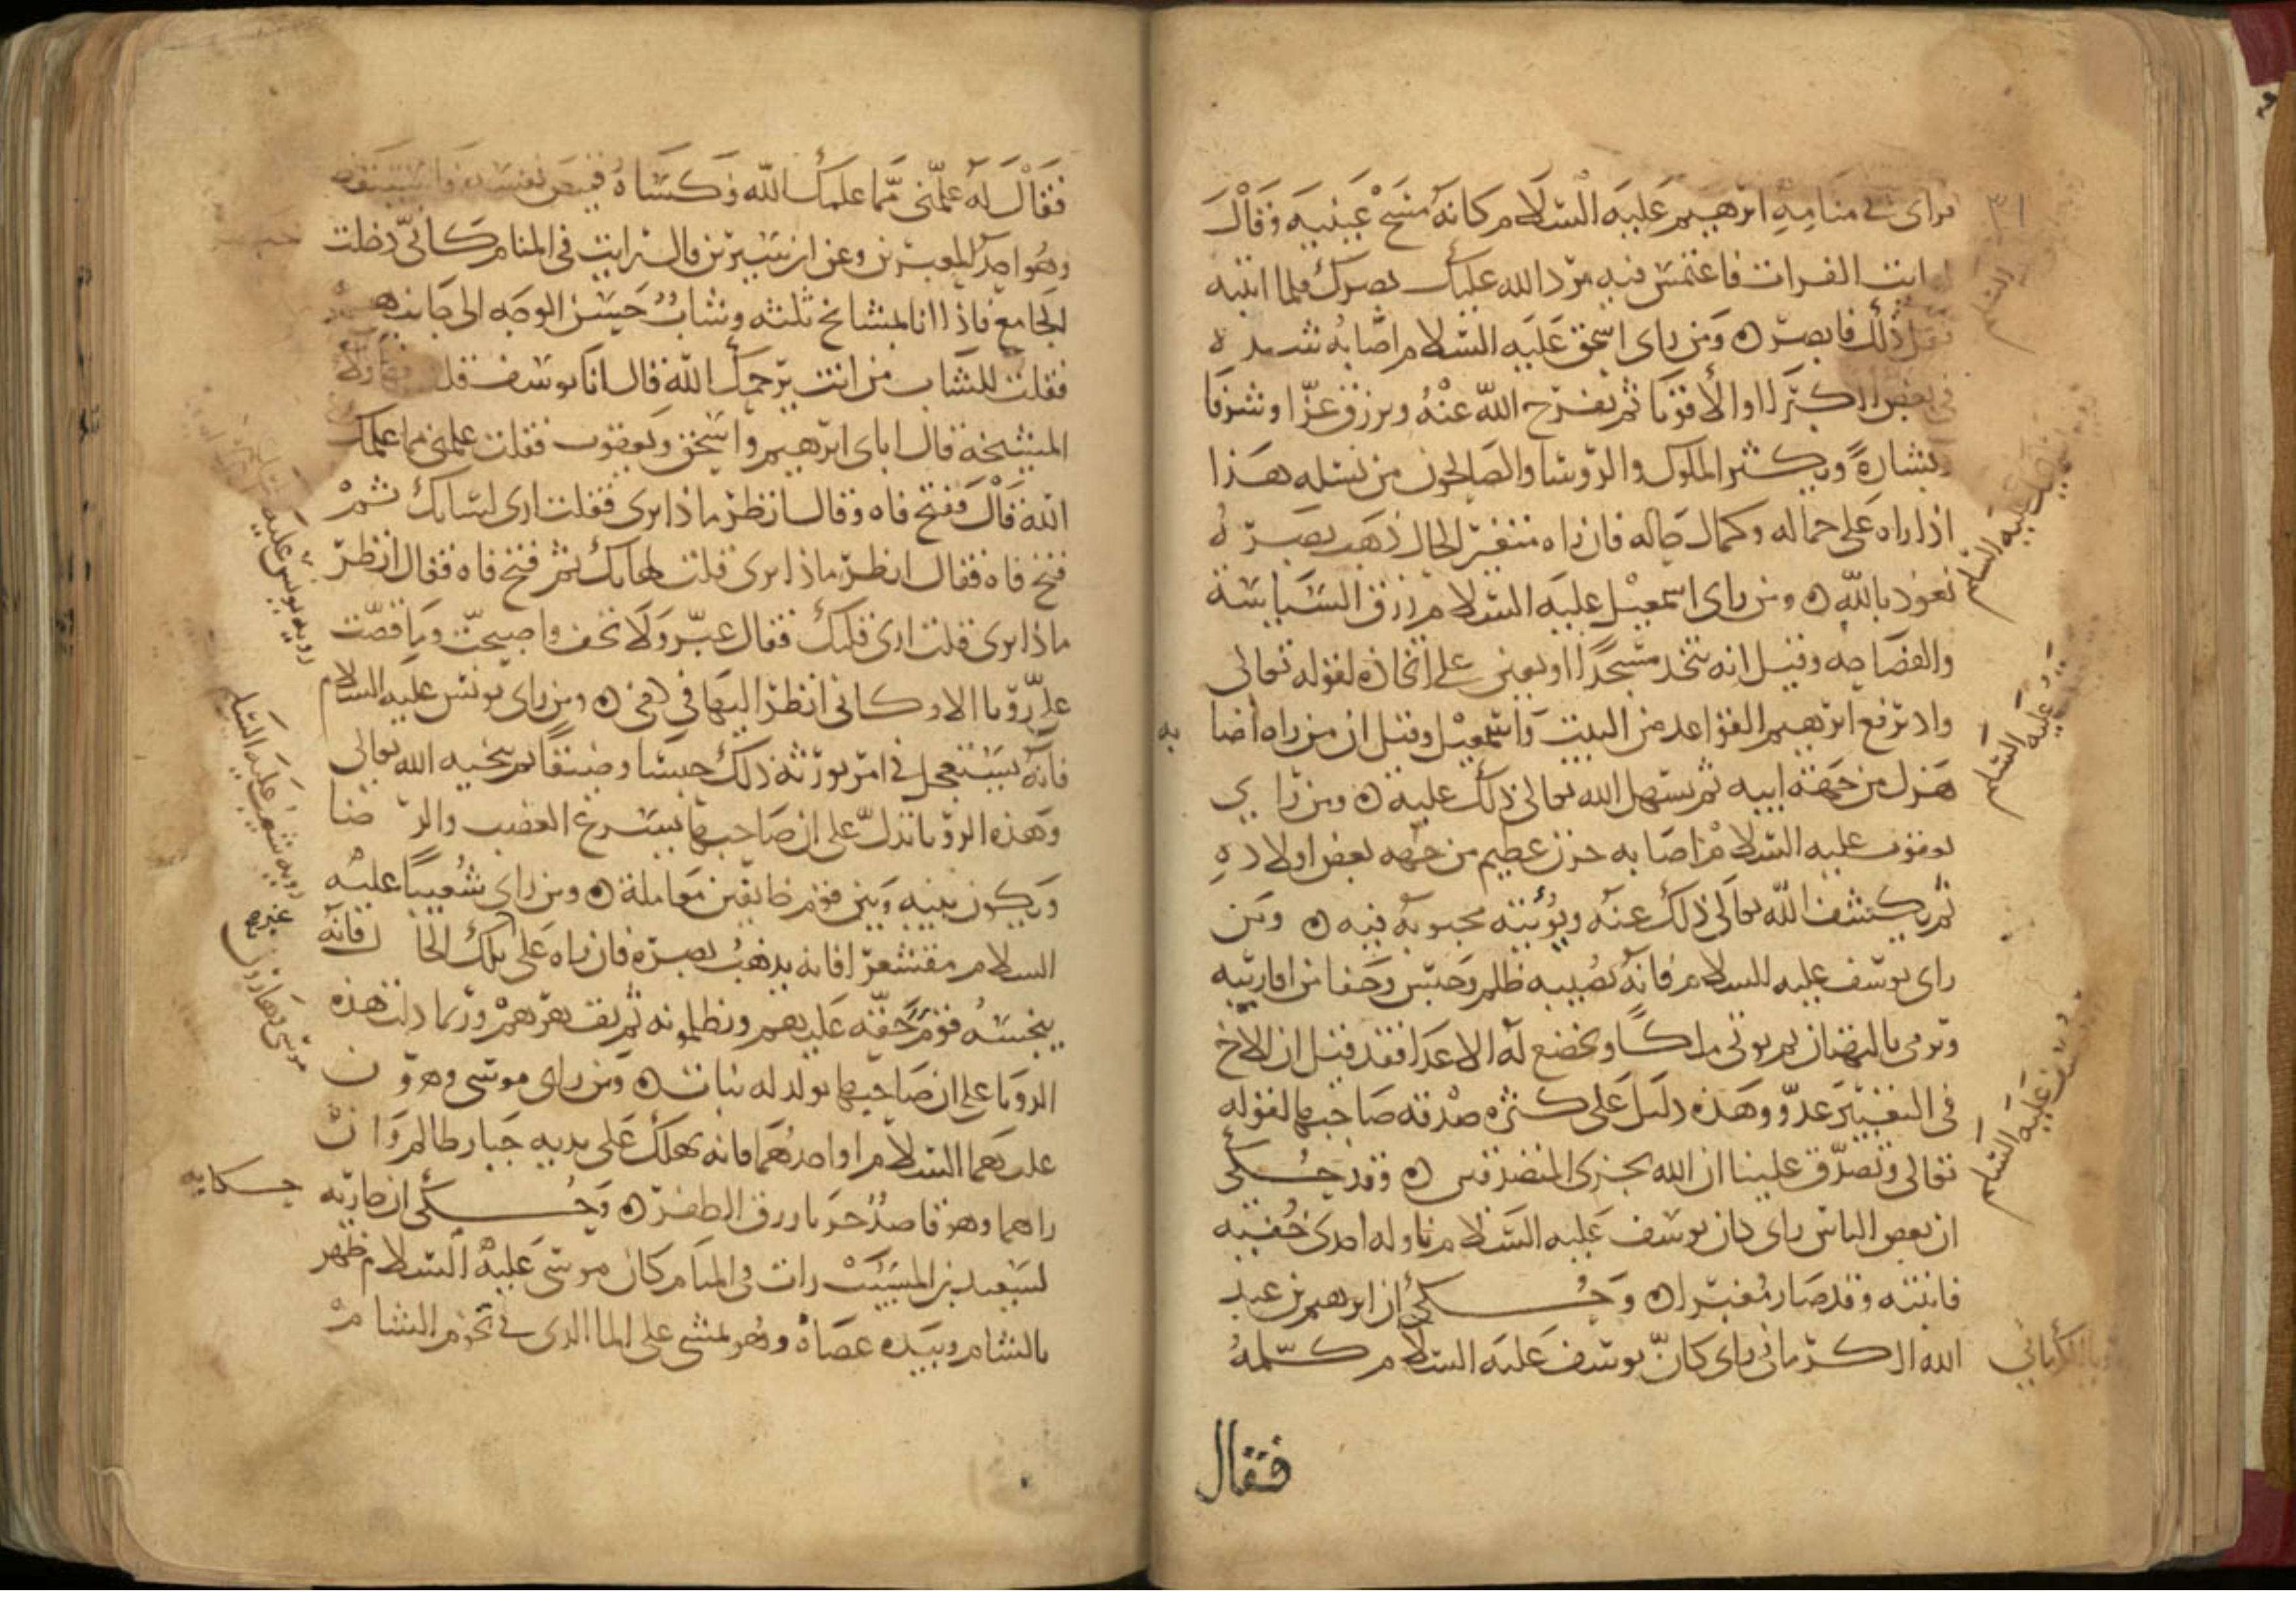 فراى في منامه ابرهيم عليه السلام كانه مسح عينيه وقال
ايت الفرات فاغتمس فيه يرد الله عليك بصرك فلما انتبه
فعل ذلك فابصر ومن راى اسحق عليه السلام اصابه شدة
في بعض الكبرا والاقربا ثم يفرج الله عنه ويرزق عزا وشرفا
وبشارة ويكثر الملوك والروسا والصالحون من نسله هذا
اذا راه على جماله وكمال حاله فان راه متغير الحال ذهب بصره
نعوذ بالله ومن راى اسمعيل عليه السلام رزق السياسة
والفصاحه وقيل انه يتخذ مسجدا او يعين على اتخاذه لقوله تعالى
واذ يرفع ابرهيم القواعد من البيت واسمعيل وقيل ان من راه اصا
به
هزل من جهة ابيه ثم يسهل الله تعالى ذلك عليه ومن راى
يعقوب عليه السلام اصابه حزن عظيم من جهه بعض اولاده
ثم يكشف الله تعالى ذلك عنه ويؤتيه محبوبه فيه ومن
راى يوسف عليه السلام فانه يصيبه ظلم وحبس وجفا من اقاربه
ويرمى بالبهتان ثم يوتى ملكا ويخضع له الاعدا فقد قيل ان الاخ
في التعبير عدو وهذه دليل على كثره صدقه صاحبها لقوله
تعالى وتصدق علينا ان الله يجزى المتصدقين وقد حكى
ان بعض الناس راى كان يوسف عليه السلام ناوله احدى خفيه
فانتبه وقد صار معبرا وحكى ان ابرهيم بن عبد
الله الكرمانى راى كان يوسف عليه السلام كلمه
فقال
٣١
عليه السلم
عليه السلم
عليه السلم
الكرماني
فقال له علمنى مما علمك الله وكساه قميص نفسه واستيقظ
وهو احد المعبرين وعن ابن سيرين قال رايت في المنام كانى دخلت
الجامع فاذا انا بمشايخ ثلثه وشاب حسن الوجه الى جانبهم
فقلت للشاب من انت يرحمك الله قال انا يوسف قلت فهاولا
المشيخه قال اباى ابرهيم واسحق ويعقوب فقلت علمنى مما علمك
الله قال ففتح فاه وقال انظر ماذا ترى فقلت ارى لسانك ثم
فتح فاه فقال انظر ماذا ترى قلت لهاتك ثم فتح فاه فقال انظر
ماذا ترى قلت ارى قلبك فقال عبر ولا تخف واصبحت وما قصت
على رؤيا الا وكانى انظر اليها في كفى ومن راى يونس عليه السلام
فانه يستعجل في امر يورثه ذلك حبسا وضيقا ثم ينجيه الله تعالى
وهذه الرؤيا تدل على ان صاحبها يسرع الغضب والرضا
ويكون بينه وبين قوم خايفين معاملة ومن راى شعيبا عليه
السلام مقشعرا فانه يذهب بصره فان راه على تلك الحال فانه
يبخسه قوم حقه عليهم ويظلمونه ثم يقهرهم وربما دلت هذه
الرويا على ان صاحبها يولد له بنات ومن راى موسى وهرون
عليهما السلام او احدهما فانه يهلك على يديه جبار ظالم وان
راهما وهو قاصد حربا رزق الظفر وحكى ان جارية
لسعيد بن المسيب رات في المنام كان موسى عليه السلام ظهر
بالشام وبيده عصاه وهو يمشى على الما الذى في تخوم الشام
رويه يونس عليه
رويه شعيب عليه السلم
غيره
موسى وهارون
حكايه